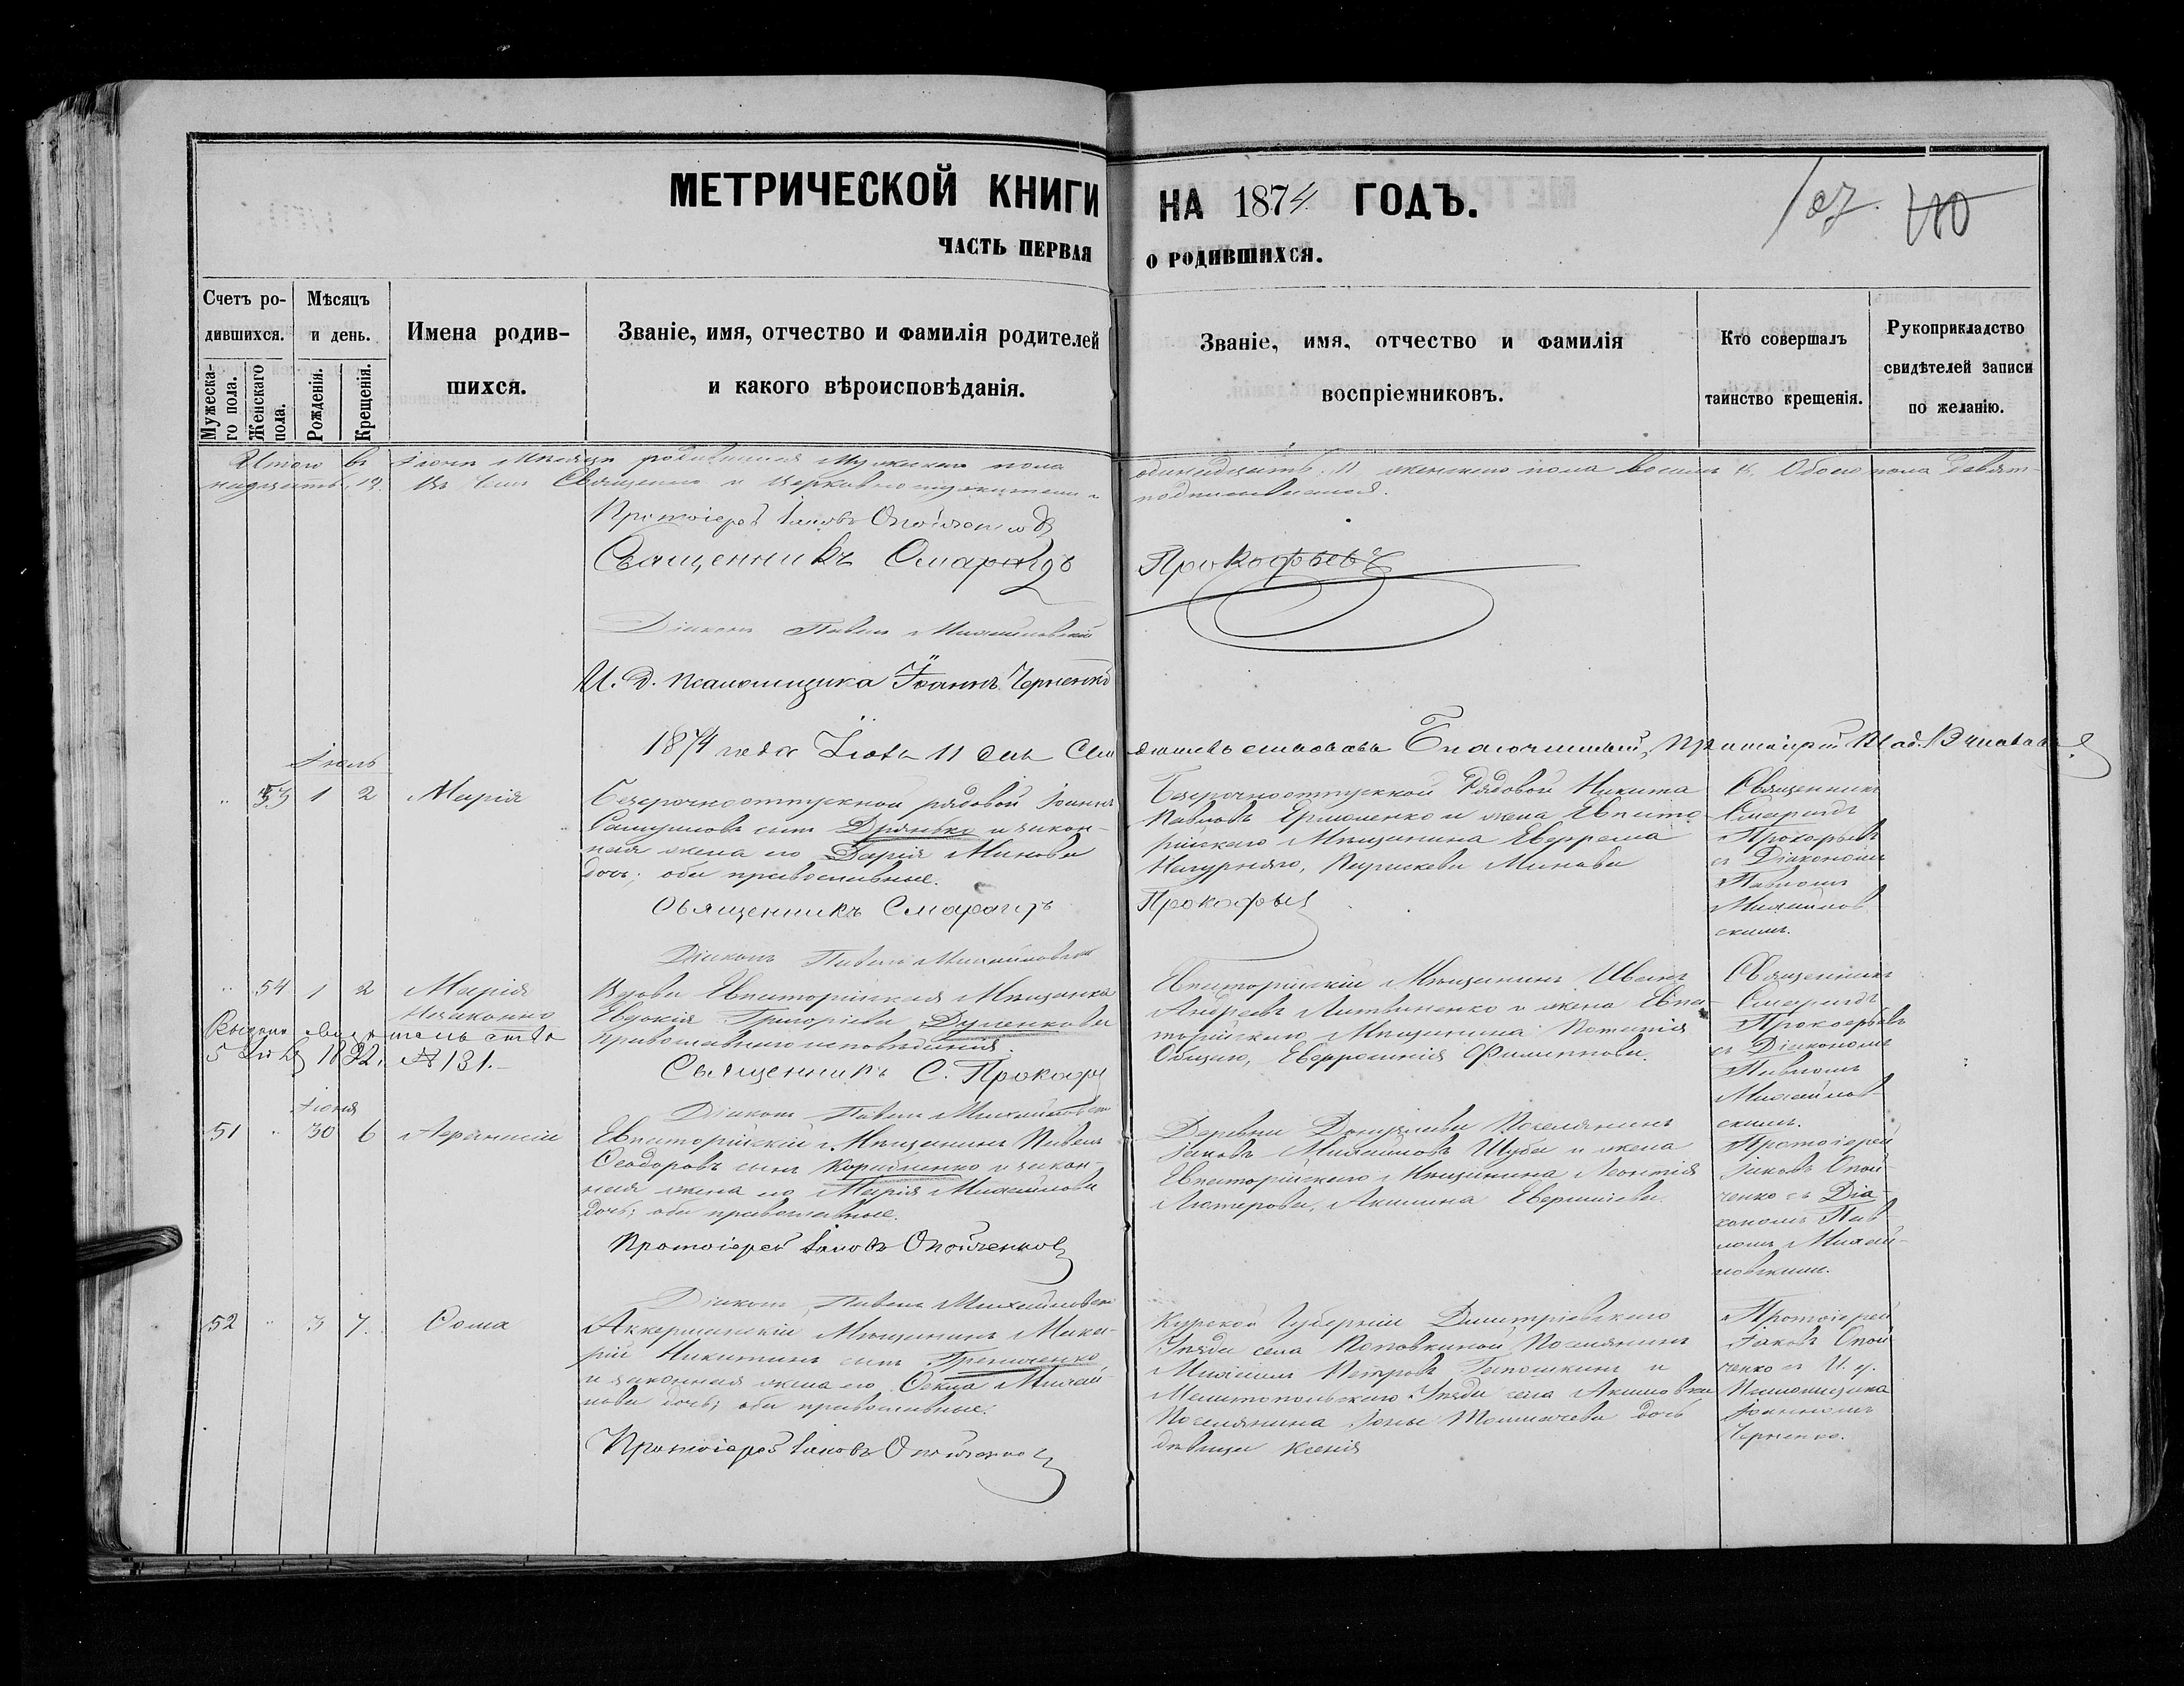 МЕТРИЧЕСКОЙ КНИГИ НА 1874 ГОДЪ.
107. 110
ЧАСТЬ ПЕРВАЯ О РОДИВШИХСЯ.
Счетъ родившихся.
Мужескаго пола.
Женскаго пола.
Мѣсяцъ и день.
Рожденія.
Крещенія.
Имена родившихся.
Званіе, имя, отчество и фамилія родителей
и какого вѣроисповѣданія.
Званіе, имя, отчество и фамилія
воспріемниковъ.
Кто совершалъ
таинство крещенія.
Рукоприкладство
свидѣтелей записи
по желанію.
Итого въ Іюнѣ мѣсяцѣ родившихся мужеска пола одиннадцать, 11 женскаго пола восемь 8, Обоего пола девят-
надцать, 19. Въ чемъ Священно и церковнослужители подписываемся.
Протоіерей Іаковъ Опойченко
Священникъ Смарагдъ Прокофьевъ
Діаконъ Павелъ Михайловскій
И. д. псаломщика Іоаннъ Черненко
1874 года Іюля 11 дня Свидѣтельствовалъ Благочинный, Протоіерей
Іюль
53 1 2 Марія
Безсрочноотпускной рядовой Іоаннъ
сынъ Дрянько и закон-
ная жена его Дарія Минова
дочь; оба православные.
Священникъ Смарагдъ Прокофьев
Діаконъ Павелъ Михайловскій
Безсрочноотпускной Рядовой Никита
Павловъ Ермоленко и жена Евпато-
рійскаго Мѣщанина
Параскева Минова
Священникъ
Смарагдъ
Прокофьевъ
съ Діакономъ
Павломъ
Михайлов-
скимъ.
54 1 2 Марія
Незаконно
Выдано свидѣтельство
1892 г. № 131.
Вдова Евпаторійская Мѣщанка
Евдокія Григоріева Дуленкова
православнаго исповѣданія.
Священникъ С. Прокофьев
Діаконъ Павелъ Михайловскій
Евпаторійскій Мѣщанинъ Иванъ
Андреевъ Литвиненко и жена Евпа-
торійскаго Мѣщанина Потапія
Евфросинія Филиппова.
Священникъ
Смарагдъ
Прокофьевъ
съ Діакономъ
Павломъ
Михайлов-
скимъ.
Іюня
51 30 6 Афанасій
Евпаторійскій Мѣщанинъ Павелъ
Ѳеодоровъ сынъ Корийненко и закон-
ная жена его Марія Михайлова
дочь; оба православные.
Протоіерей Іаковъ Опойченко
Діаконъ Павелъ Михайловскій
Деревни Поселянинъ
Іаковъ Михайловъ Шуба и жена
Евпаторійскаго Мѣщанина Леонтія
Акилина
Протоіерей
Іаковъ Опой-
ченко съ Діа-
кономъ Пав-
ломъ Михай-
ловскимъ.
52 3 7 Ѳома
Аккерманскій Мѣщанинъ Мака-
рій Никитинъ сынъ
и законная жена его Ѳекла Михай-
лова дочь; оба православные.
Протоіерей Іаковъ Опойченко
Курской Губерніи Димитріевскаго
Уѣзда села Поповкиной Поселянинъ
Михаилъ Петровъ и
Мелитопольскаго Уѣзда села Акимовки
Поселянина Іоны дочь
дѣвица Ксенія
Протоіерей
Іаковъ Опой-
ченко съ И. д.
Псаломщика
Іоанномъ
Черненко.